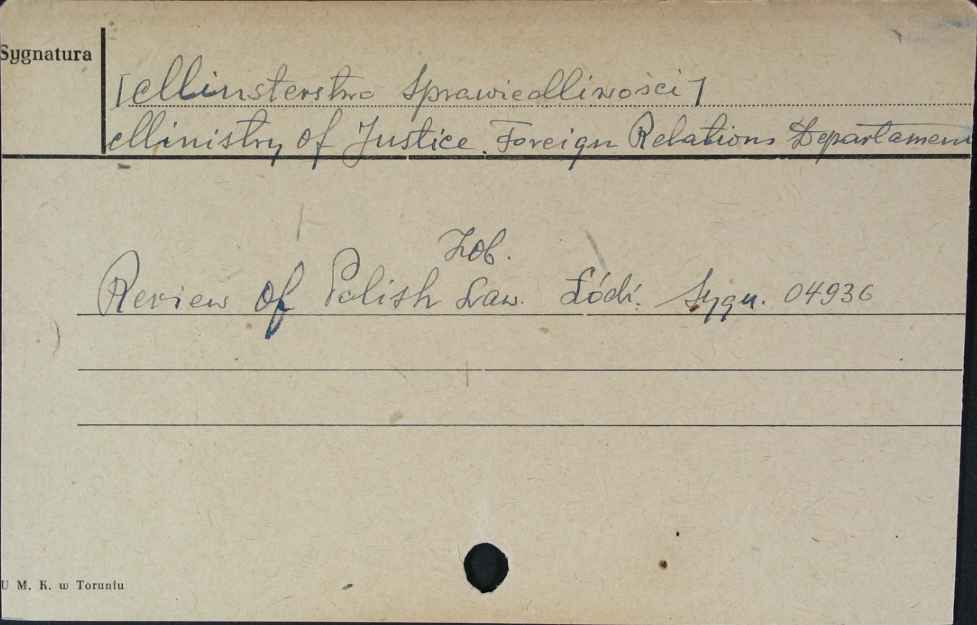 Sygnatura
[Ministerstwo Sprawiedliwości]
Ministry of Justice. Foreign Relations Departament
Zob.
Review of Polish Law. Łódź. Sygn. 04936
U M. K. w Toruniu